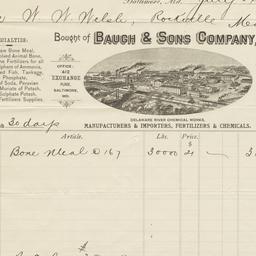 Baltimore, Md.
W. W. Welsh, Rockville
Bought of BAUGH & SONS COMPANY,
SPECIALTIES:
Raw Bone Meal,
Dissolved Animal Bone,
Sulphate of Ammonia,
Fish, Tankage,
Phosphate,
of Soda, Peruvian
Muriate of Potash,
Sulphate Potash,
Fertilizers Supplies.
OFFICE:
412
EXCHANGE
PLACE,
BALTIMORE,
MD.
DELAWARE RIVER CHEMICAL WORKS.
30 days
MANUFACTURERS & IMPORTERS, FERTILIZERS & CHEMICALS.
Article. Lbs. Price.
$
Bone Meal @ 167 30000 21
#